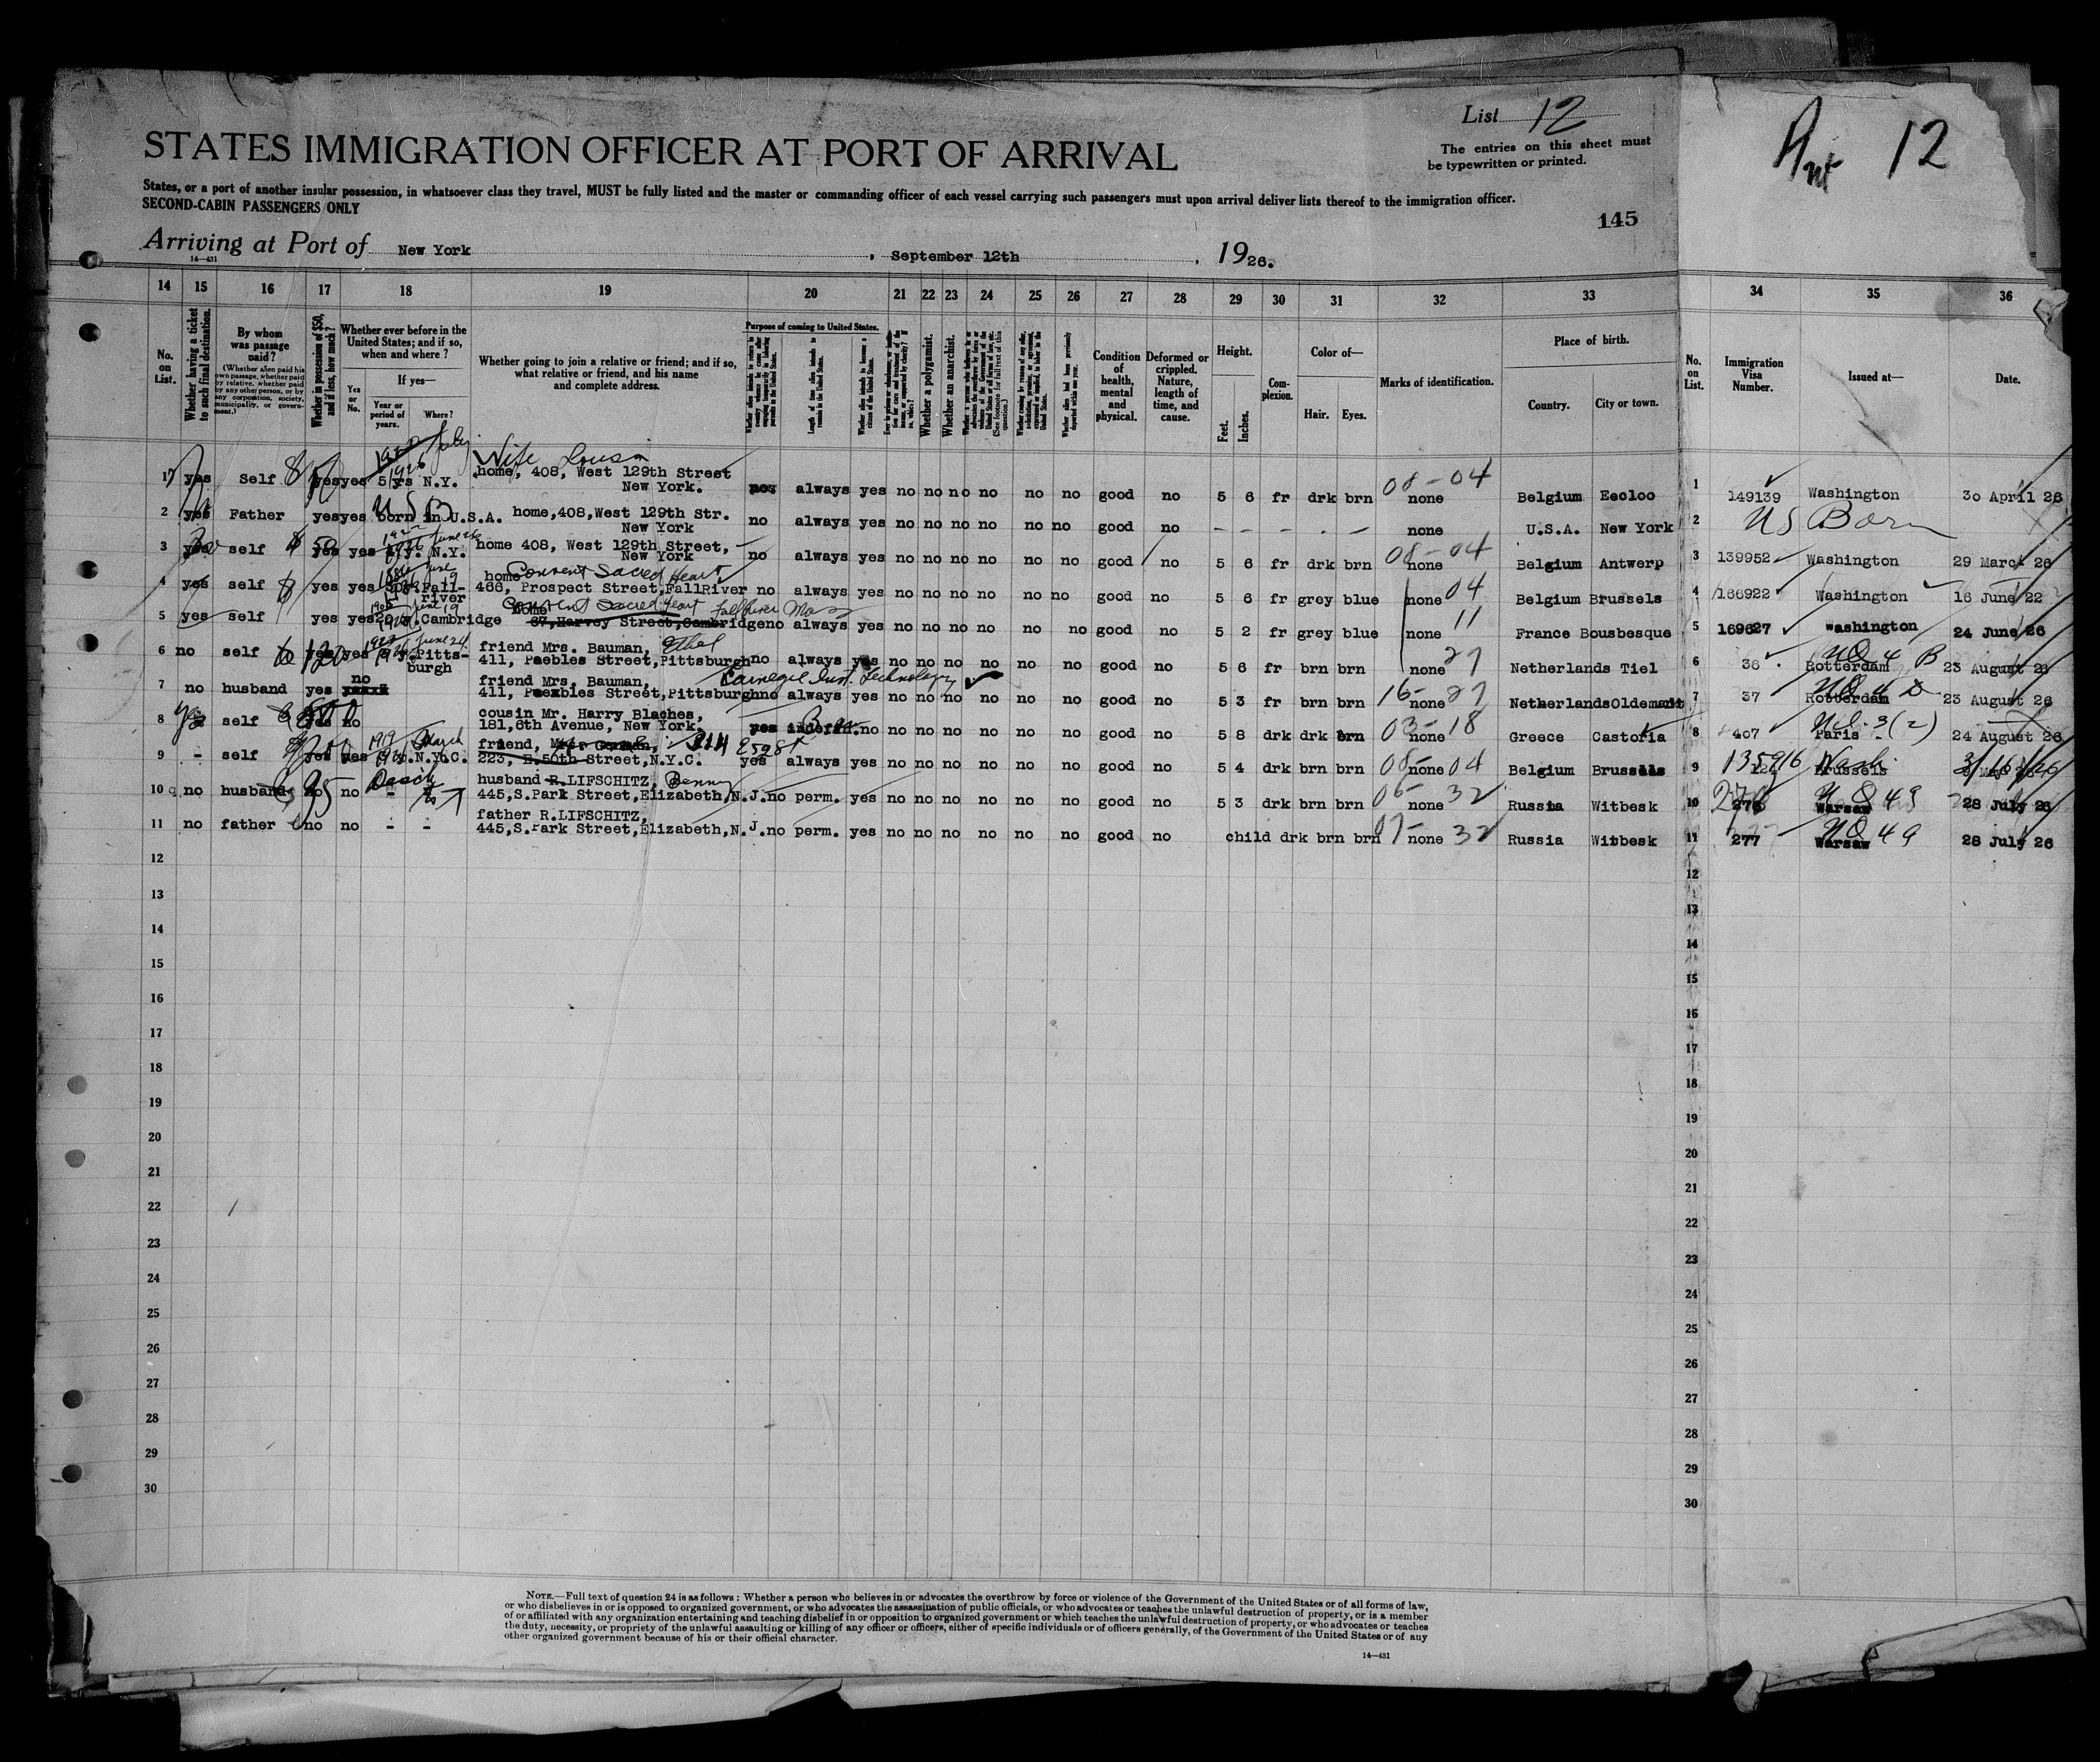 List 12
The entries on this sheet must
be typewritten or printed.
12
STATES IMMIGRATION OFFICER AT PORT OF ARRIVAL
States, or a port of another insular possession, in whatsoever class they travel, MUST be fully listed and the master or commanding officer of each vessel carrying such passengers must upon arrival deliver lists thereof to the immigration officer.
SECOND-CABIN PASSENGERS ONLY
145
Arriving at Port of New York, September 12th, 1926.
14—431
14 15 16 17 18 19 20 21 22 23 24 25 26 27 28 29 30 31 32 33 34 35 36
No. on List.
Whether having a ticket to such final destination.
By whom was passage paid?
(Whether alien paid his own passage, whether paid by relative, whether paid by any other person, or by any corporation, society, municipality, or government.)
Whether in possession of $50, and if less, how much?
Whether ever before in the United States; and if so, when and where?
Yes or No.
If yes—
Year or period of years.
Where?
Whether going to join a relative or friend; and if so, what relative or friend, and his name and complete address.
Purpose of coming to United States.
Length of time alien intends to remain in the United States.
Whether alien intends to become a citizen of the United States.
Whether a polygamist.
Whether an anarchist.
Condition of health, mental and physical.
Deformed or crippled. Nature, length of time, and cause.
Height.
Feet.
Inches.
Complexion.
Color of—
Hair.
Eyes.
Marks of identification.
Place of birth.
Country.
City or town.
No. on List.
Immigration Visa Number.
Issued at—
Date.
Wife Louisa
1 yes Self yes yes 5 ys N.Y. home, 408, West 129th Street
New York. always yes no no no no no no good no 5 6 fr drk brn 08-04 none Belgium Eecloo 1 149139 Washington 30 April 26
2 yes Father yes yes born in U.S.A. home,408,West 129th Str.
New York no always yes no no no no no no good no - - - - - none U.S.A. New York 2 US Born
3 yes self yes yes N.Y. home 408, West 129th Street,
New York no always yes no no no no no no good no 5 6 fr drk brn 08-04 none Belgium Antwerp 3 139952 Washington 29 March 26
home Convent Sacred Heart
4 yes self yes yes Fall-river 466, Prospect Street,FallRiver no always yes no no no no no no good no 5 6 fr grey blue none 04 Belgium Brussels 4 166922 Washington 16 June 22
home Convent Sacred Heart Fall River Mass
5 yes self yes yes Cambridge 67,Harvey Street,Cambridge no always yes no no no no no no good no 5 2 fr grey blue none 11 France Bousbesque 5 169627 Washington 24 June 26
friend Mrs. Bauman, Ethel
6 no self yes yes Pitts-burgh 411, Peebles Street,Pittsburgh no always yes no no no no no no good no 5 6 fr brn brn none 27 Netherlands Tiel 6 36 Rotterdam 23 August 26
friend Mrs. Bauman, Carnegie Inst. Technology
7 no husband yes no 411, Peebles Street,Pittsburgh no always yes no no no no no no good no 5 3 fr brn brn 16-27 none Netherlands Oldemarkt 7 37 Rotterdam 23 August 26
cousin Mr. Harry Blaches,
8 self yes no 181,6th Avenue, New York. yes indefn. no no no no no no no good no 5 8 drk drk brn 03-18 none Greece Castoria 8 407 Paris 24 August 26
friend, 214 E 59th St
9 - self yes yes N.Y.C. 223, E.50th Street,N.Y.C. yes always yes no no no no no no good no 5 4 drk brn brn 08-04 none Belgium Brussels 9 135916 Brussels Wash. 3/16/26
husband R.LIFSCHITZ, Benny
10 no husband no no - 445,S.Park Street,Elizabeth,N.J. no perm. yes no no no no no no good no 5 3 drk brn brn 06-32 none Russia Witbesk 10 276 Warsaw 28 July 26
father R.LIFSCHITZ,
11 no father no no - - 445,S.Park Street,Elizabeth,N.J. no perm. yes no no no no no no good no child drk brn brn 07-32 none Russia Witbesk 11 277 Warsaw 28 July 26
12 12
13 13
14 14
15 15
16 16
17 17
18 18
19 19
20 20
21 21
22 22
23 23
24 24
25 25
26 26
27 27
28 28
29 29
30 30
NOTE.—Full text of question 24 is as follows: Whether a person who believes in or advocates the overthrow by force or violence of the Government of the United States or of all forms of law,
or who disbelieves in or is opposed to organized government, or who advocates the assassination of public officials, or who advocates or teaches the unlawful destruction of property, or is a member
of or affiliated with any organization entertaining and teaching disbelief in or opposition to organized government or which teaches the unlawful destruction of property, or who advocates or teaches
the duty, necessity, or propriety of the unlawful assaulting or killing of any officer or officers, either of specific individuals or of officers generally, of the Government of the United States or of any
other organized government because of his or their official character.
14—431